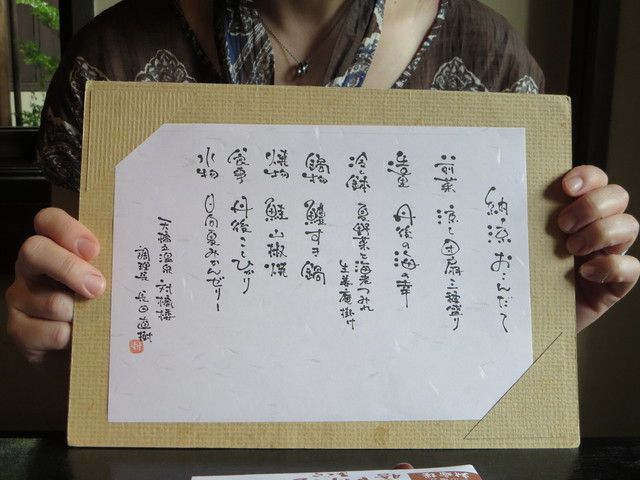 納涼おこんだて
前菜 涼し団扇三種盛り
造里 丹後の海の幸
冷し鉢 夏野菜と海老つみれ
生姜庵掛け
鍋物 鱧すき鍋
焼物 鮭山椒焼
食事 丹後こしひかり
水物 日向夏みかんゼリー
天橋立温泉 対橋楼
調理長 長田直樹